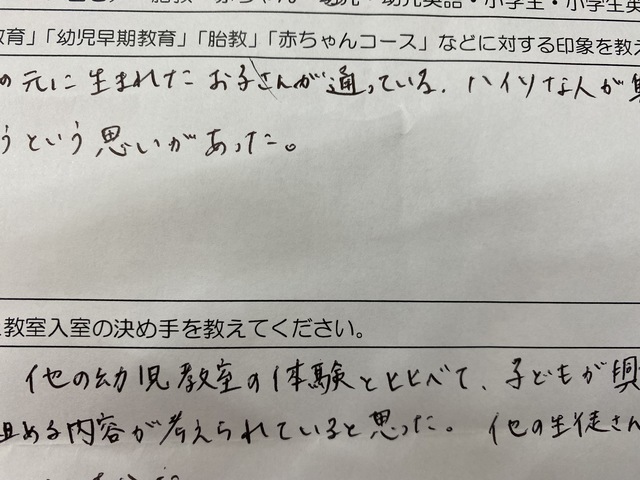 胎教・赤ちゃん・幼児・幼児英語・小学生・小学生英
教育」「幼児早期教育」「胎教」「赤ちゃんコース」などに対する印象を教え
の元に生まれたお子さんが通っている、ハイソな人が
うという思いがあった。
教室入室の決め手を教えてください。
他の幼児教室の体験とくらべて、子どもが興
組める内容が考えられていると思った。 他の生徒さん